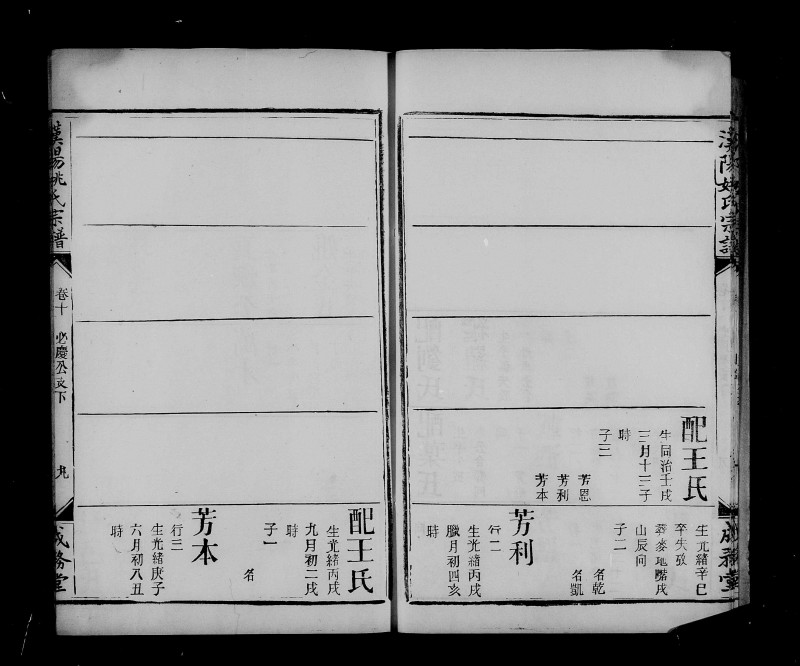 漢陽姚氏宗譜
成務堂
配王氏
生同治壬戌
三月十三子
時
子三
芳恩
芳利
芳本
生光緒辛巳
卒失攷
葬麥地嘴戌
山辰向
子二
名乾
名凱
芳利
行二
生光緒丙戌
臘月初四亥
時
配王氏
生光緒丙戌
九月初二戌
時
子一
名
芳本
行三
生光緒庚子
六月初八丑
時
漢陽姚氏宗譜
卷十
必慶公支下
九
成務堂